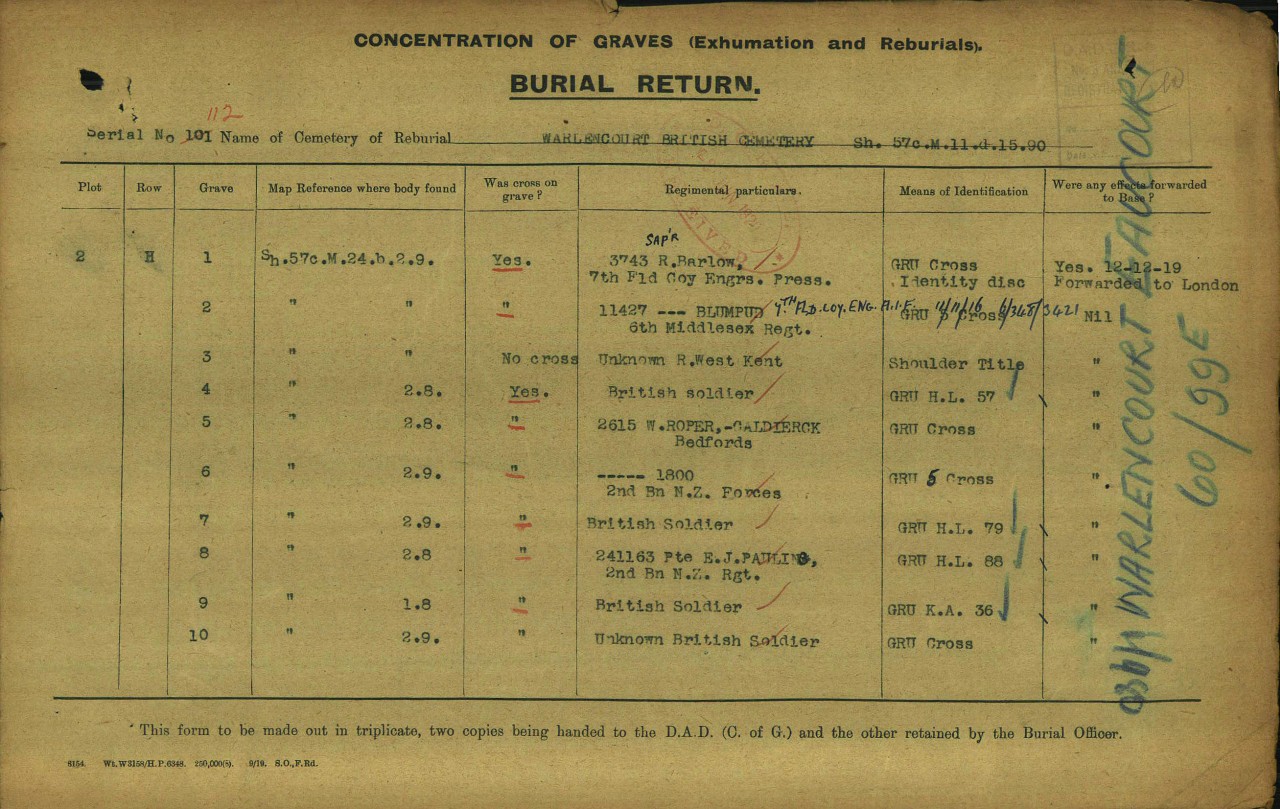 CONCENTRATION OF GRAVES (Exhumation and Reburials).
BURIAL RETURN.
112
Serial No 101 Name of Cemetery of Reburial WARLENCOURT BRITISH CEMETERY Sh. 57c.M.11.d.15.90
Plot Row Grave Map Reference where body found Was cross on grave? Regimental particulars. Means of Identification Were any effects forwarded to Base?
SAP'R
2 H 1 Sh.57c.M.24.b.2.9. Yes. 3743 R.Barlow, GRU Cross Yes. 12-12-19
7th Fld Coy Engrs. Press. Identity disc Forwarded to London
7TH FLD. COY. ENG. A.I.F. 11/11/16
2 " " " 11427 --- BLUMPUD GRU Cross Nil
6th Middlesex Regt.
3 " " No cross Unknown R.West Kent Shoulder Title "
4 " 2.8. Yes. British soldier GRU H.L. 57 "
5 " 2.8. " 2615 W.ROPER,-CALDIERCK GRU Cross "
Bedfords
6 " 2.9. " ----- 1800 GRU 5 Cross "
2nd Bn N.Z. Forces
7 " 2.9. " British Soldier GRU H.L. 79 "
8 " 2.8 " 241163 Pte E.J.PAULING, GRU H.L. 88 "
2nd Bn N.Z. Rgt.
9 " 1.8 " British Soldier GRU K.A. 36 "
10 " 2.9. " Unknown British Soldier GRU Cross "
WARLENCOURT EAUCOURT
60/99E
This form to be made out in triplicate, two copies being handed to the D.A.D. (C. of G.) and the other retained by the Burial Officer.
6154. Wt.W3158/H.P.6348. 250,000(8). 9/19. S.O.,F.Rd.